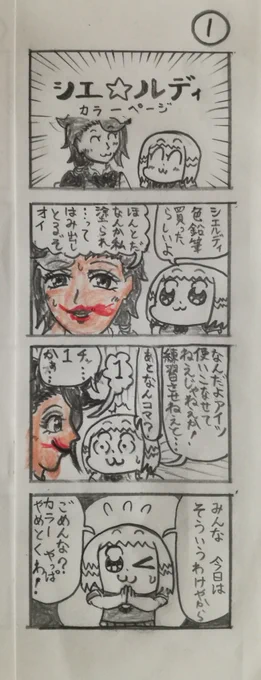 1
シエ☆ルディ
カラーページ
シエルディ
色鉛筆
買った
らしいよ
ほんとだ
なんか私
塗られ
…って
はみ出し
とるぞ
オイ
なんだよアイツ
使いこなせて
ねえじゃねえか!
練習させねえて…
あとなんコマ?
1
チッ…
1
かぁ…
みんな 今日は
そういうわけやから
ごめんな?
カラー やっぱ
やめとくわ!